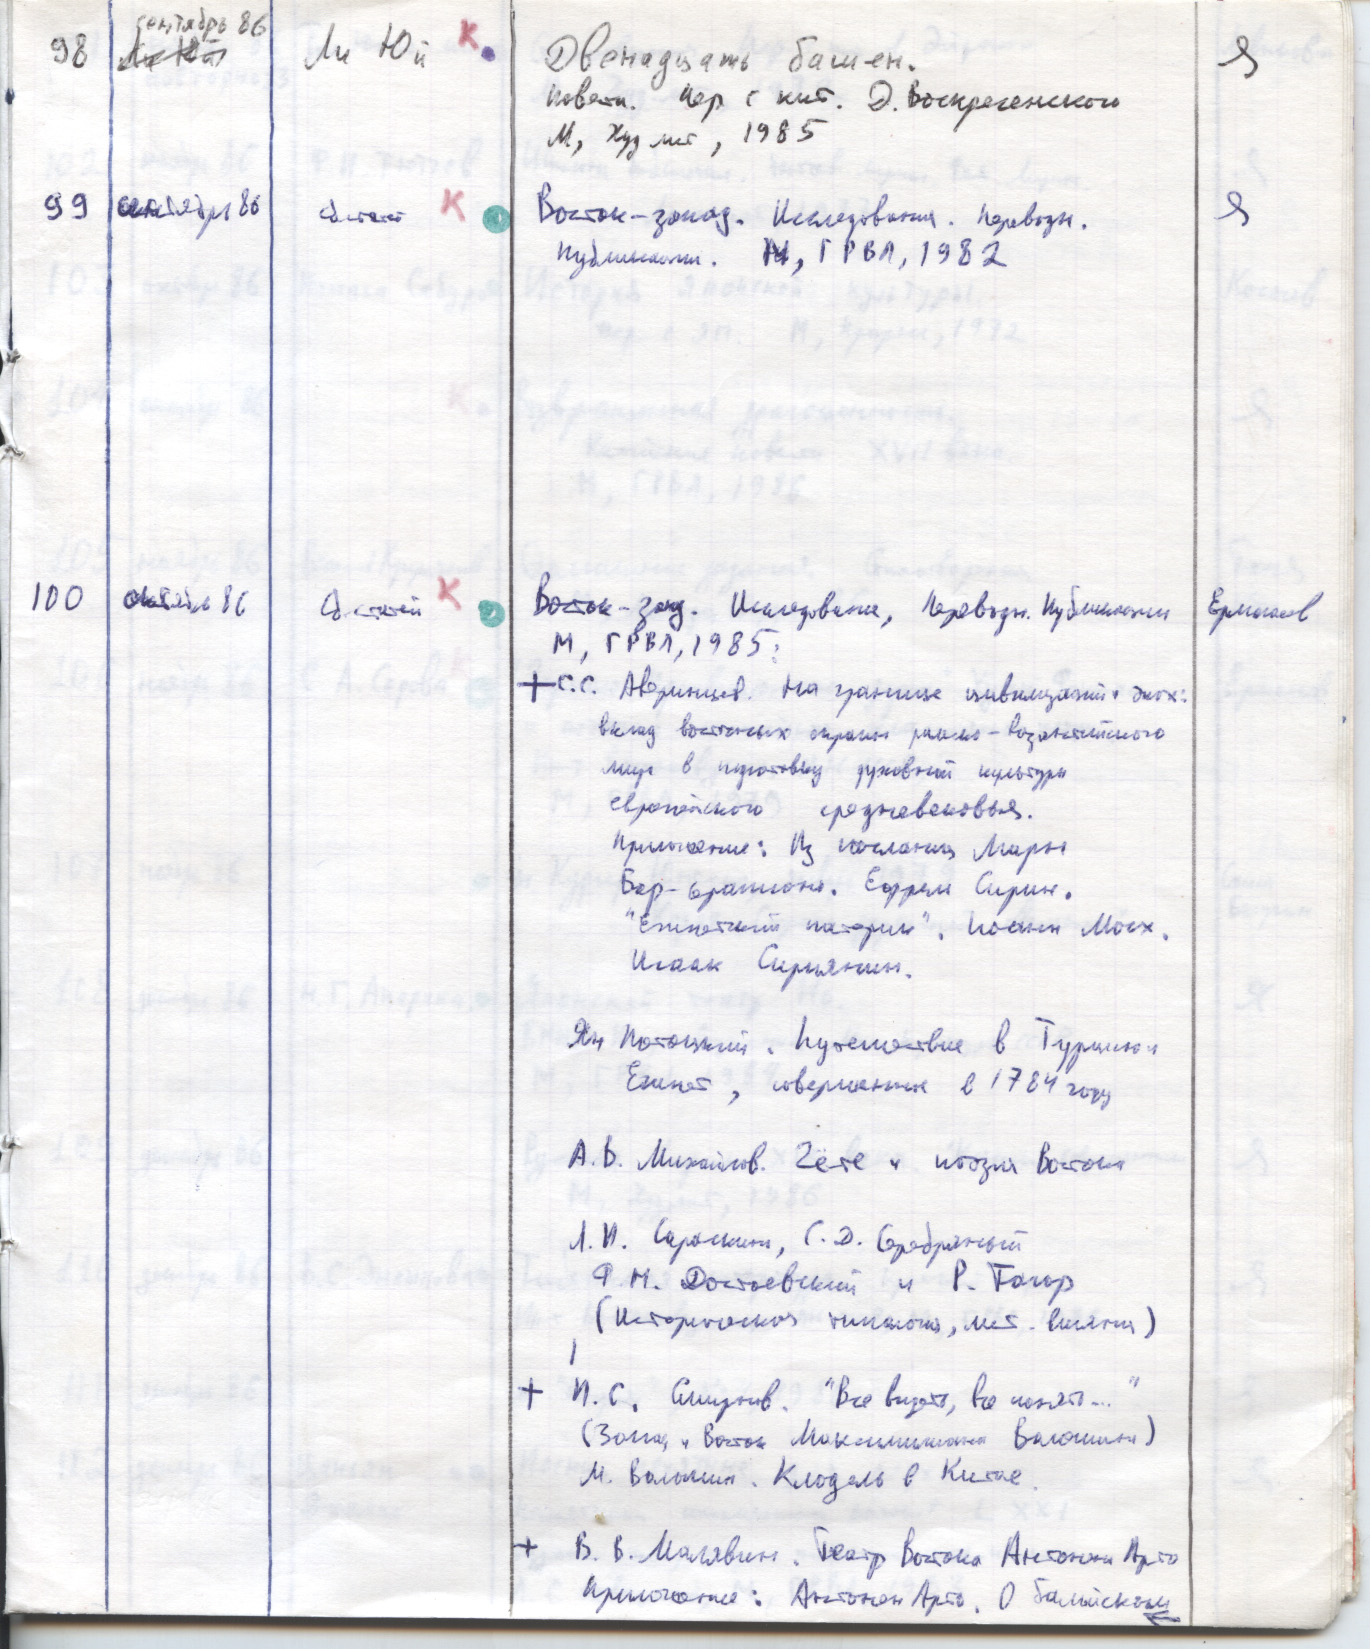 сентябрь 86
98 Ли Юй К Двенадцать башен. Я
Повести. Пер с кит. Д. Воскресенского
М, Худ лит, 1985
99 сентябрь 86 К Восток-запад. Исследования. Переводы. Я
Публикации. М, ГРВЛ, 1982
100 октябрь 86 Сб. статей К Восток-запад. Исследования, Переводы. Публикации
М, ГРВЛ, 1985:
+ С.С. Аверинцев. На границе цивилизаций и эпох:
вклад восточных окраин римско-византийского
мира в подготовку духовной культуры
европейского средневековья.
Приложение: Из послания Мары
Бар-Серапиона. Ефрем Сирин.
"Египетский патерик". Иоанн Мосх.
Исаак Сириянин.
Ян Потоцкий. Путешествие в Турцию и
Египет, совершенное в 1784 году
А.В. Михайлов. Гёте и поэзия Востока
Л.И. Сараскина, С.Д. Серебряный
Ф.М. Достоевский и Р. Тагор
(Историческая типология, лит. влияния)
+ И.С. Смирнов. "Все видеть, все понять..."
(Запад и Восток Максимилиана Волошина)
М. Волошин. Клодель в Китае.
+ В.В. Малявин. Театр Востока Антонена Арто
Приложение: Антонен Арто. О балийском